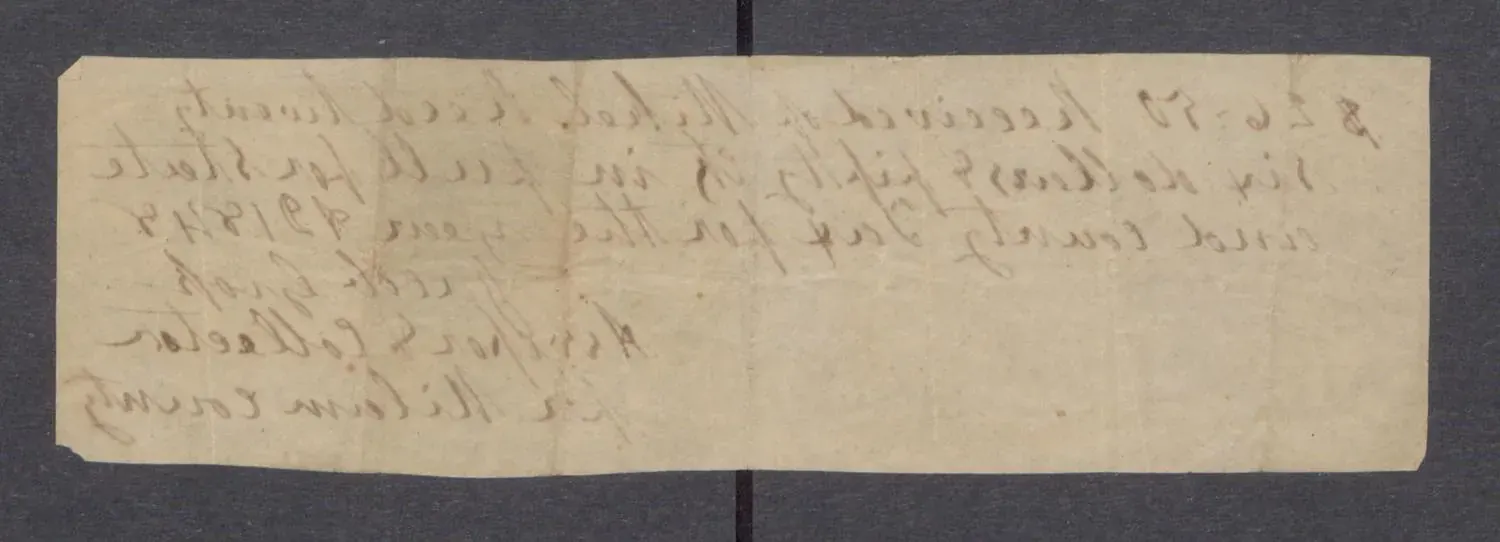 $26-50 Received of Mikel Reed twenty
six dollars & fifty cts in full for State
and county Tax for the year AD 1848
Jacob Gross
Ass & Collector
for Milam county